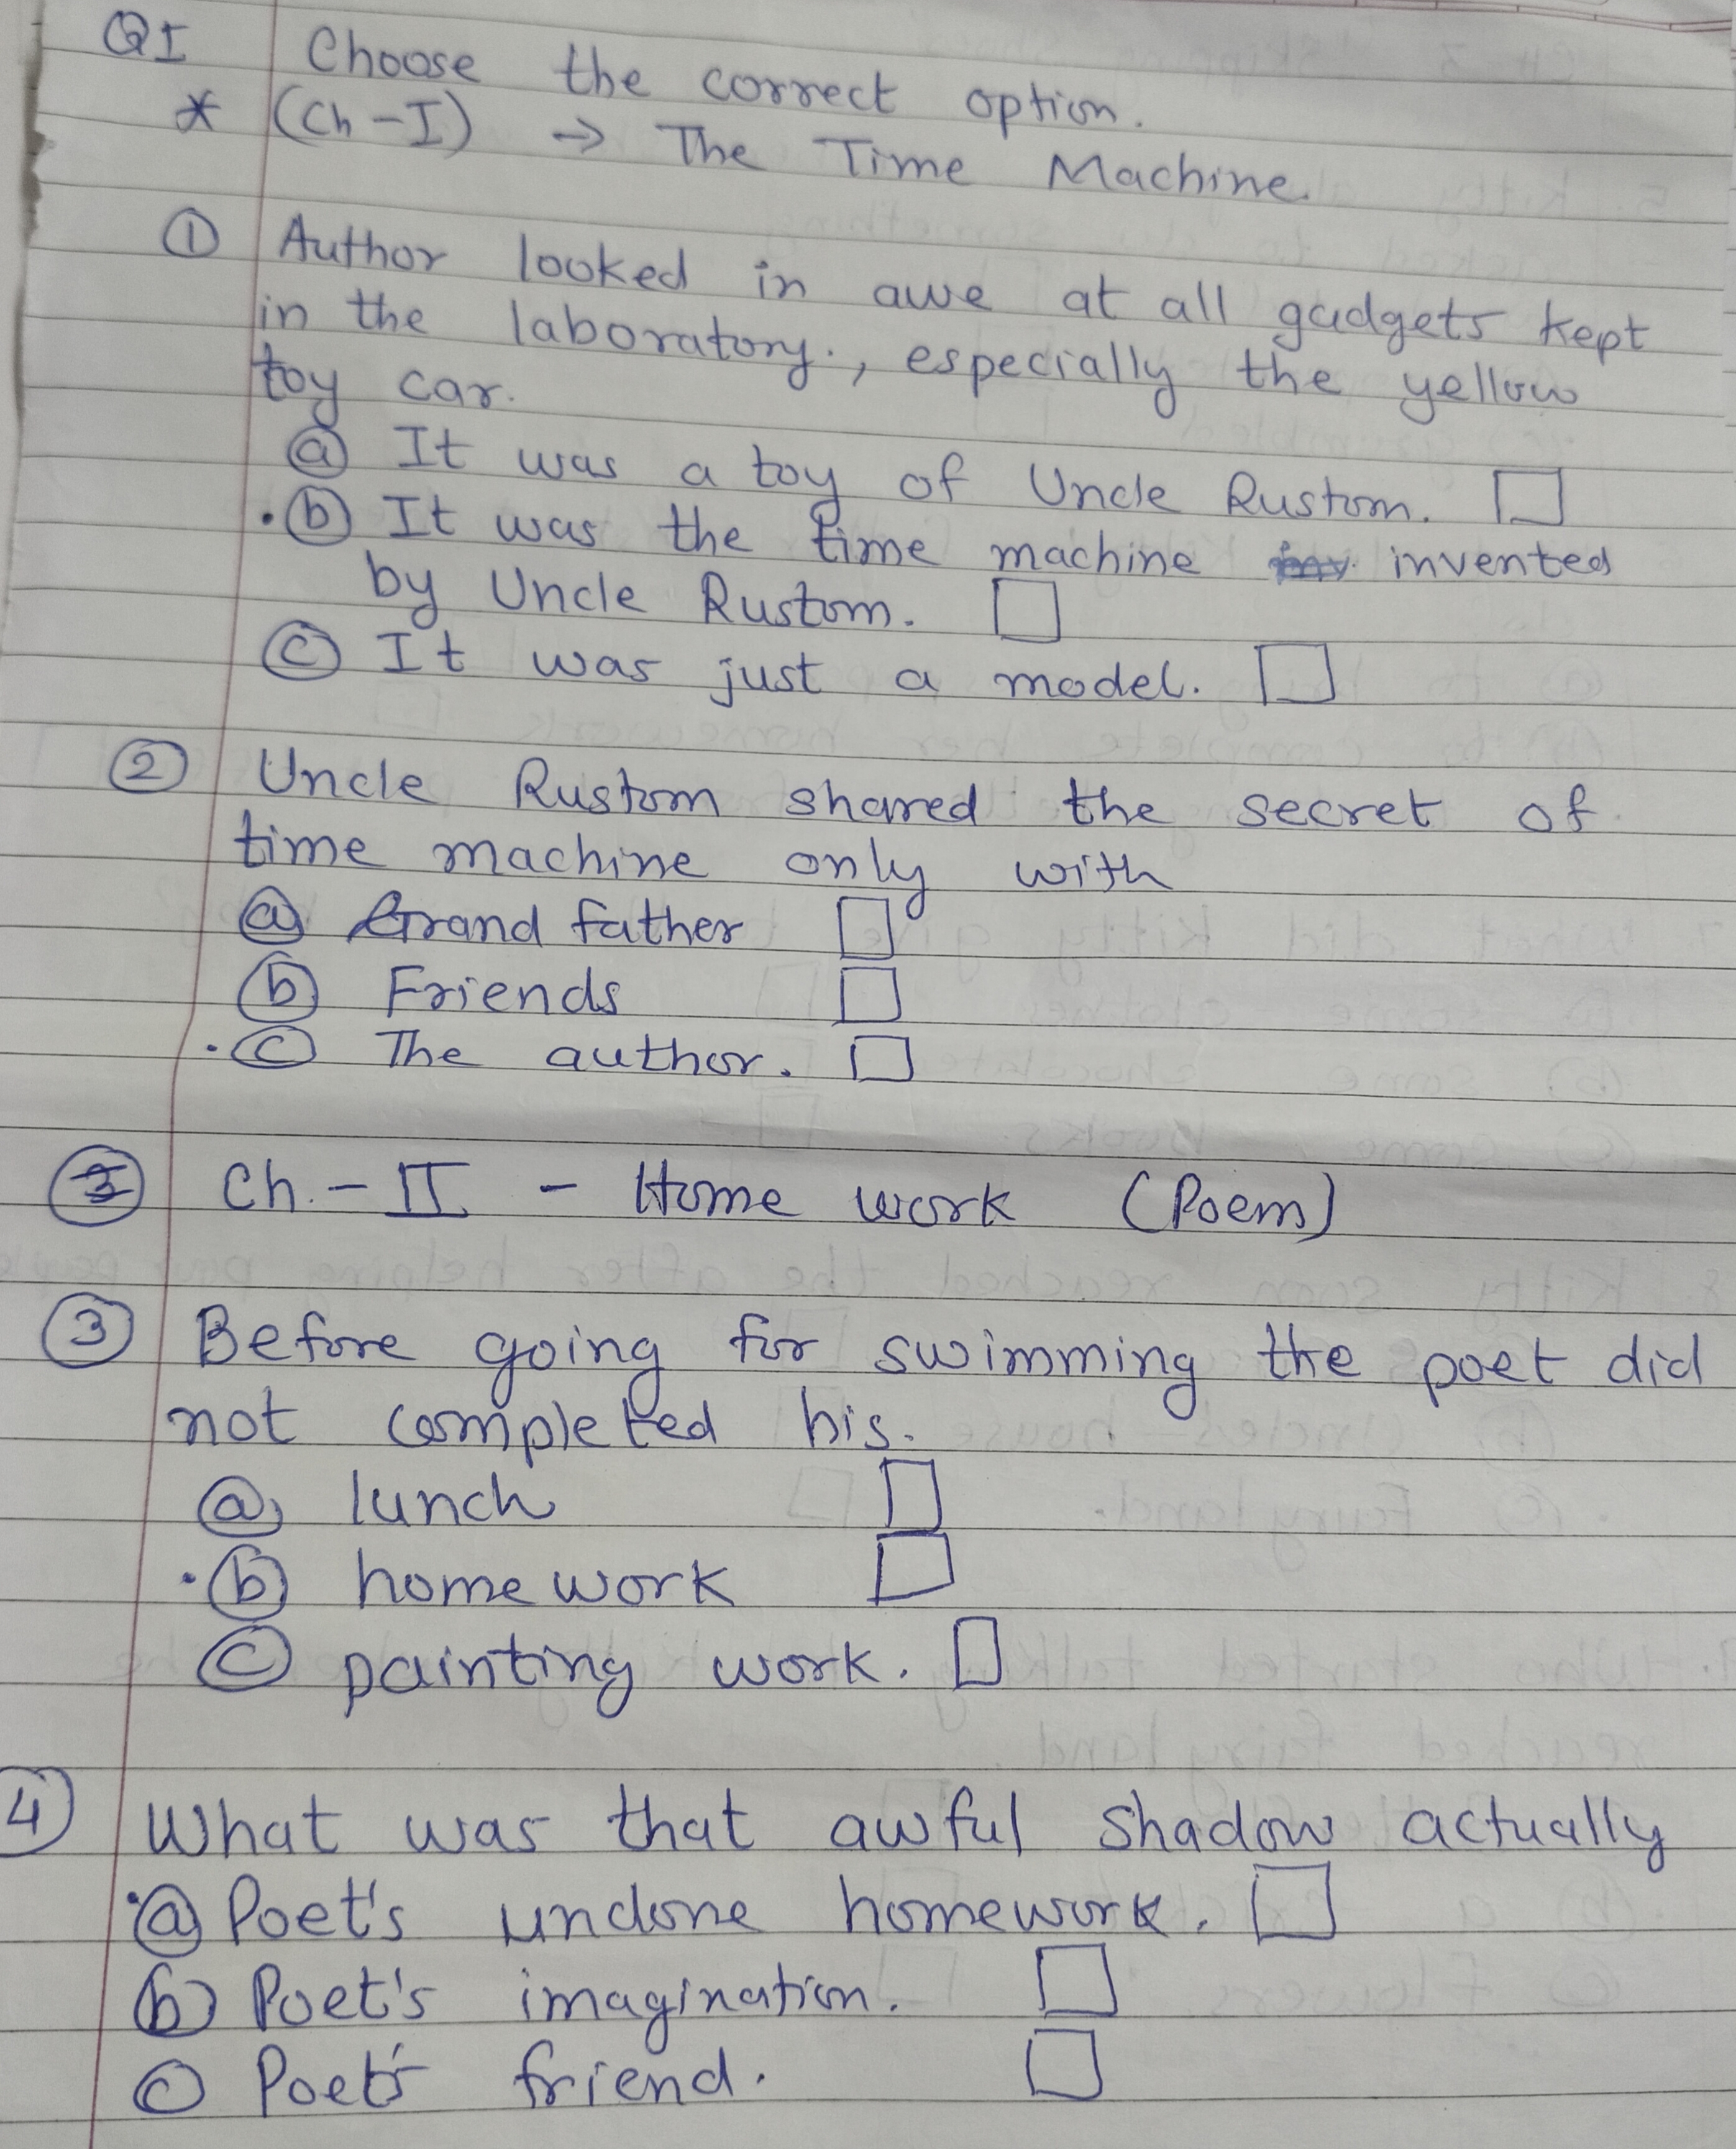 QI Choose the correct option.
* (Ch-I) → The Time Machine.
① Author looked in awe at all gadgets kept
in the laboratory., especially the yellow
toy car.
ⓐ It was a toy of Uncle Rustom. □
·ⓑ It was the time machine invented
by Uncle Rustom. □
ⓒ It was just a model. □
② Uncle Rustom shared the secret of
time machine only with
ⓐ Grand father □
ⓑ Friends □
·ⓒ The author. □
Ch.-II - Home work (Poem)
③ Before going for swimming the poet did
not completed his.
ⓐ lunch □
·ⓑ home work □
ⓒ painting work. □
④ What was that awful shadow actually
·ⓐ Poet's undone homework. □
ⓑ Poet's imagination. □
ⓒ Poet's friend. □